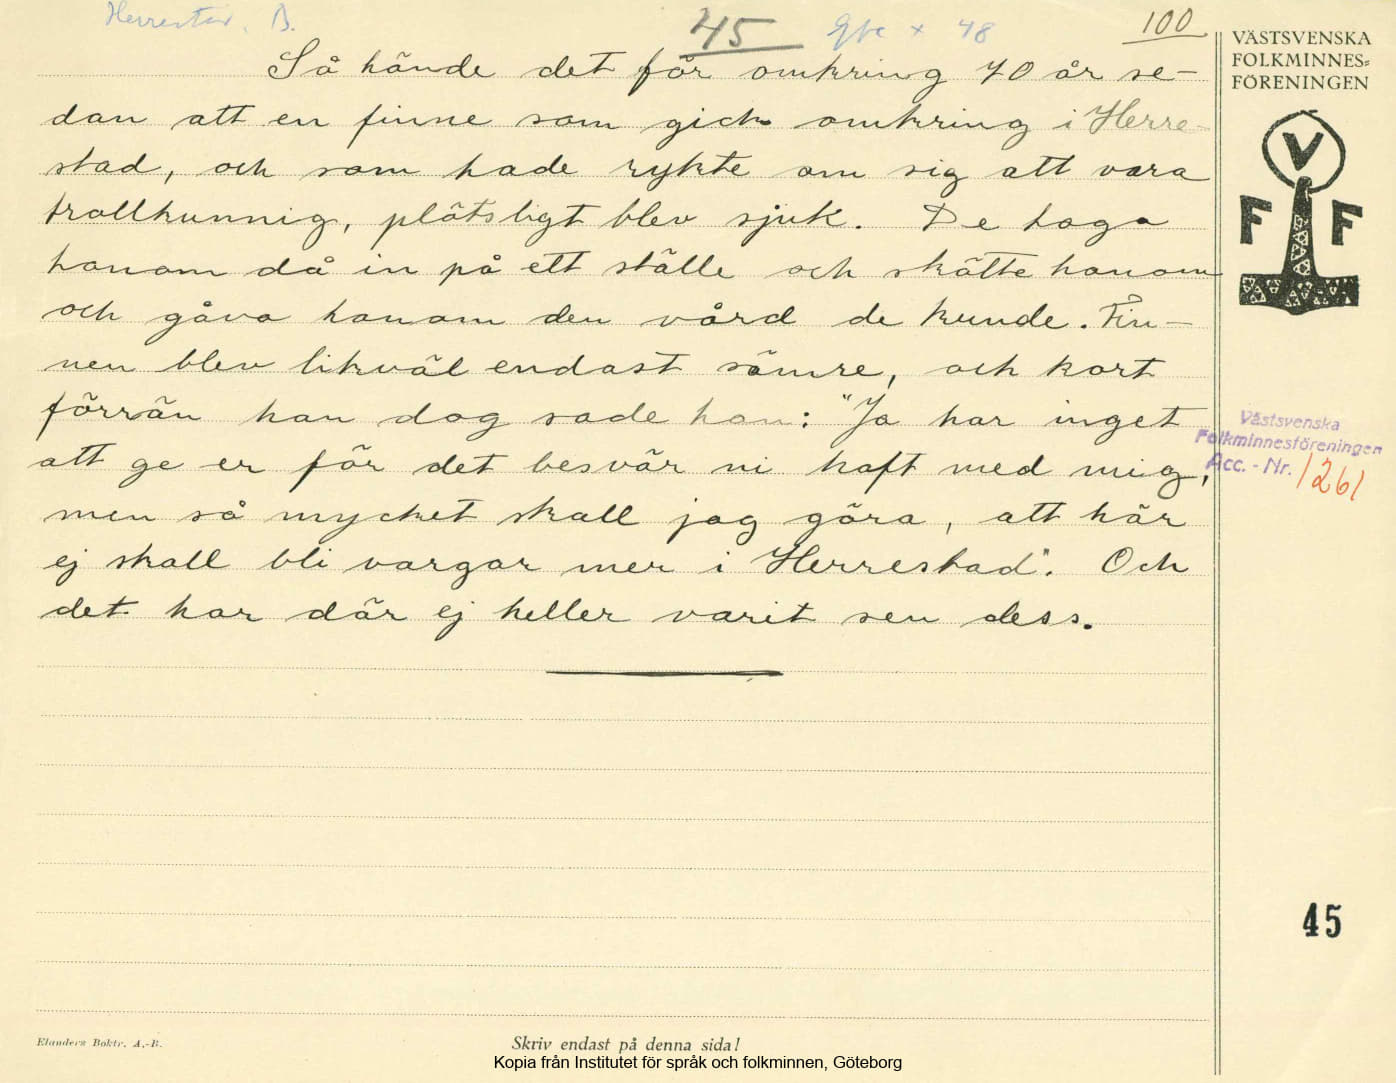 Herrestad. B.
45
100
VÄSTSVENSKA
FOLKMINNES=
FÖRENINGEN
V
F F
Så hände det för omkring 70 år se-
dan att en finne som gick omkring i Herre-
stad, och som hade rykte om sig att vara
trollkunnig, plötsligt blev sjuk. De toga
honom då in på ett ställe och skötte honom
och gåvo honom den vård de kunde. Fin-
nen blev likväl endast sämre, och kort
förrän han dog sade han: "Ja har inget
att ge er för det besvär ni haft med mig,
men så mycket skall jag göra, att här
ej skall bli vargar mer i Herrestad". Och
det har där ej heller varit sen dess.
Västsvenska
Folkminnesföreningen
Acc. - Nr. 1261
45
Elanders Boktr. A.-B.
Skriv endast på denna sida!
Kopia från Institutet för språk och folkminnen, Göteborg